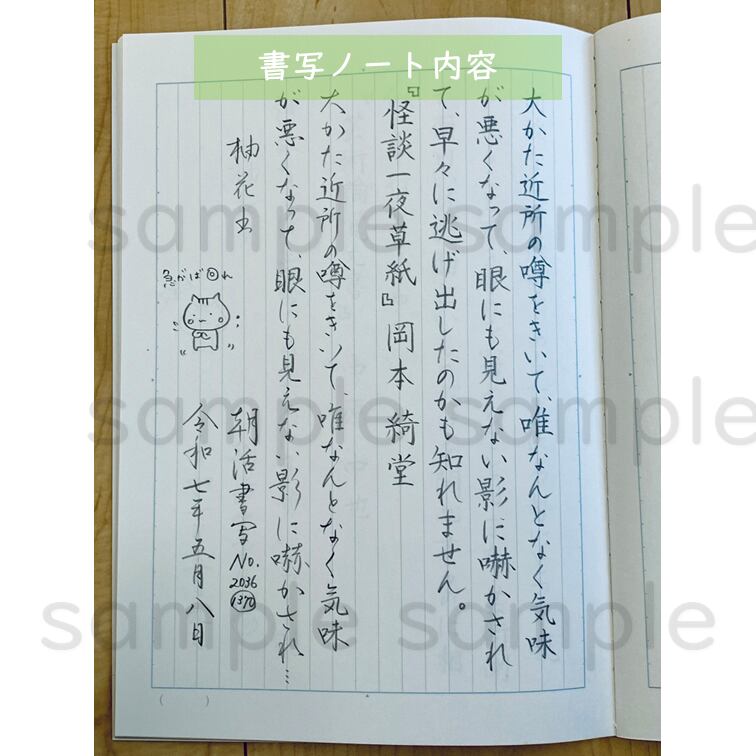 書写ノート内容
大かた近所の噂をきいて、唯なんとなく気味
が悪くなって、眼にも見えない影に嚇かされ
て、早々に逃げ出したのかも知れません。
『怪談一夜草紙』岡本 綺堂
大かた近所の噂をきいて、唯なんとなく気味
が悪くなって、眼にも見えない影に嚇かされ…
柚花
朝活書写No.
2036
1370
急がば回れ
令和七年五月八日
sample sample
sample sample
sample sample